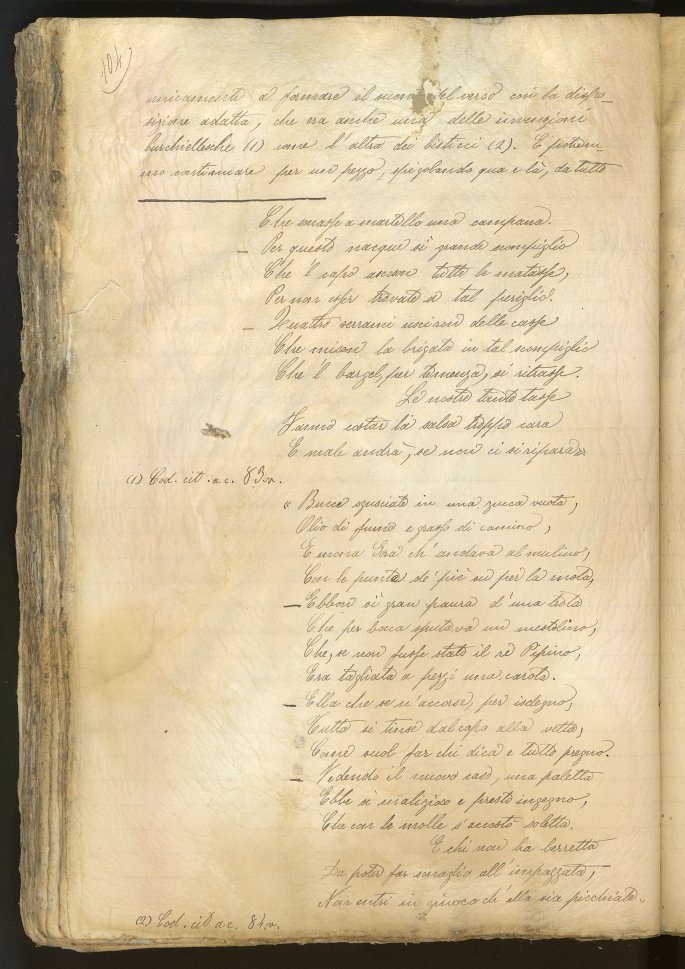 104
unicamente a formare il suono del verso con la dispo-
sizione adatta, che era anche una delle invenzioni
burchiellesche (1) come l'altra dei bisticci (2). E potrem-
mo continuare per un pezzo, spigolando qua e là, da tutto
Che sonasse a martello una campana.
– Per questo nacque sì grande scompiglio
Che 'l capo ascoson tutte le matasse,
Per non esser trovate a tal periglio.
– Quattro serrami uscirono delle casse
Che mison la brigata in tal scompiglio
Che 'l bargel, per temenza, si ritrasse.
Le nostre tante tasse
Fanno costar la salsa troppo cara
E male andrà, se non ci si ripara »
(1) Cod. cit. a c. 83.v.
« Bucce sgusciate in una zucca vuota,
Olio di fumo e grasso di camino,
E mona Gora ch' andava al mulino,
Con le punte de' piè su per la mota,
– Ebbon sì gran paura d'una trota
Che per bocca sputava un mestolino,
Che, se non fusse stato il re Pipino,
Era tagliata a pezzi una carota.
– Ella che se n'accorse, per isdegno,
Tutta si tinse dal capo alla vetta,
Come suol far chi dica e tutto pregno.
– Vedendo il nuovo caso, una paletta
Ebbe sì malizioso e presto ingegno,
Che con le molle s'accostò soletta.
E chi non ha berretta
Da poter far sonaglio all'impazzata,
Non entri in giuoco ch'ella sia picchiata.
(2) Cod. cit. a c. 84.v.